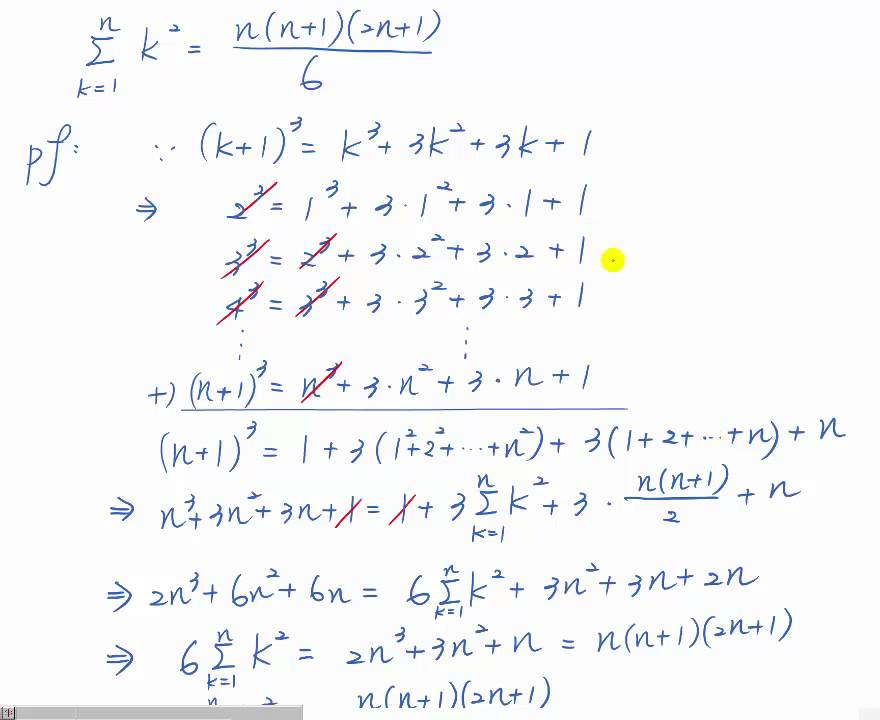 ∑_{k=1}^{n} k² = n(n+1)(2n+1)/6
pf: ∵ (k+1)³ = k³ + 3k² + 3k + 1
⇒ 2³ = 1³ + 3·1² + 3·1 + 1
3³ = 2³ + 3·2² + 3·2 + 1
4³ = 3³ + 3·3² + 3·3 + 1
⋮ ⋮
+) (n+1)³ = n³ + 3·n² + 3·n + 1
(n+1)³ = 1 + 3(1²+2²+⋯+n²) + 3(1+2+⋯+n) + n
⇒ n³+3n²+3n+1 = 1 + 3∑_{k=1}^{n} k² + 3·n(n+1)/2 + n
⇒ 2n³+6n²+6n = 6∑_{k=1}^{n} k² + 3n²+3n+2n
⇒ 6∑_{k=1}^{n} k² = 2n³+3n²+n = n(n+1)(2n+1)
n 2 n(n+1)(2n+1)